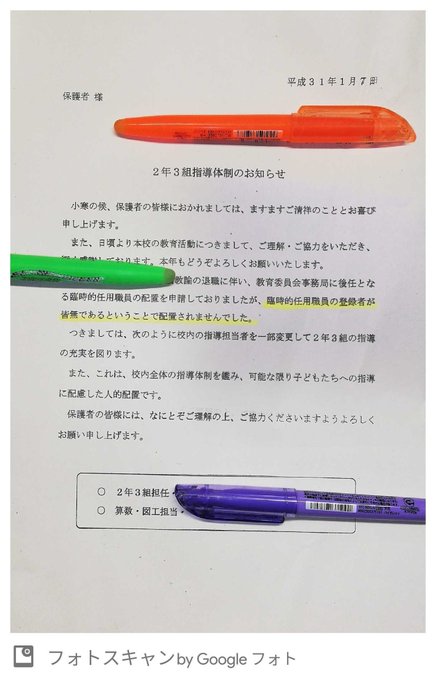 平成31年1月7日
保護者 様
2年3組指導体制のお知らせ
小寒の候、保護者の皆様におかれましては、ますますご清祥のこととお喜び
申し上げます。
また、日頃より本校の教育活動につきまして、ご理解・ご協力をいただき、
おります。本年もどうぞよろしくお願いいたします。
教諭の退職に伴い、教育委員会事務局に後任とな
る臨時的任用職員の配置を申請しておりましたが、臨時的任用職員の登録者が
皆無であるということで配置されませんでした。
つきましては、次のように校内の指導担当者を一部変更して2年3組の指導
の充実を図ります。
また、これは、校内全体の指導体制を鑑み、可能な限り子どもたちへの指導
に配慮した人的配置です。
保護者の皆様には、なにとぞご理解の上、ご協力くださいますようよろしく
お願い申し上げます。
○ 2年3組担任
○ 算数・図工担当
フォトスキャン by Google フォト